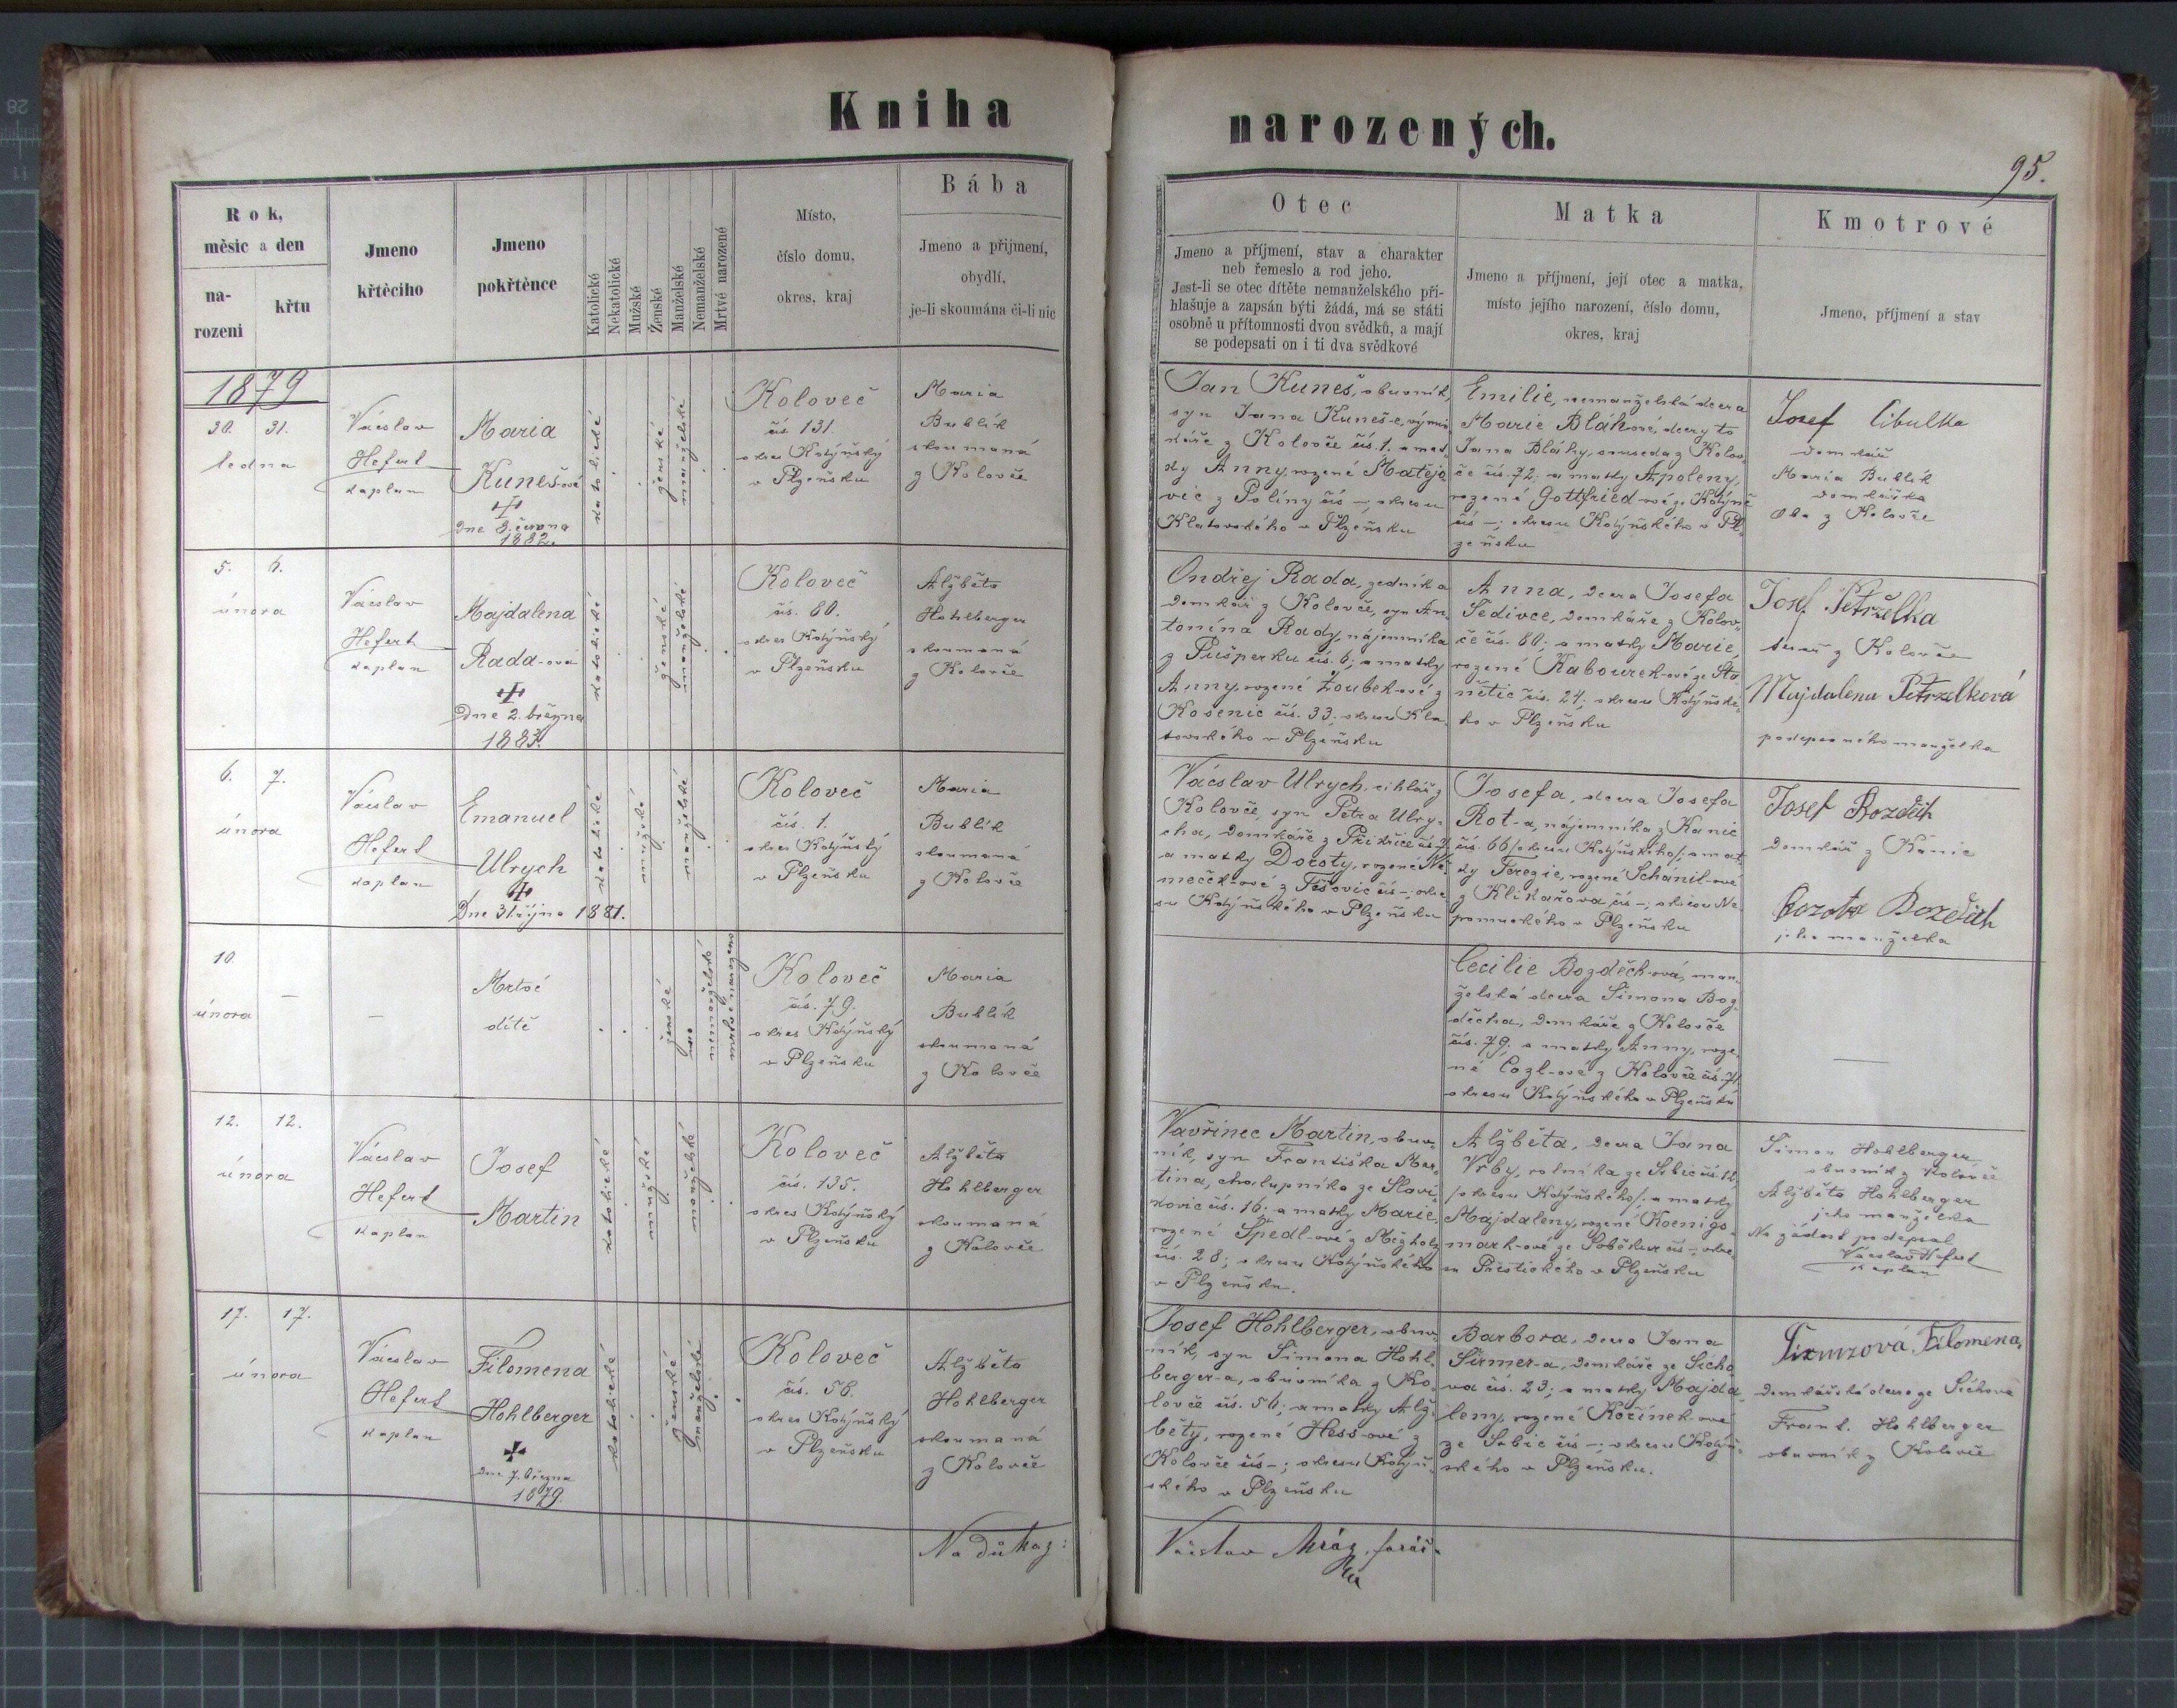 Kniha narozených.
95.
Rok,
měsíc a den
na-
rozeni
křtu
Jmeno
křtěcího
Jmeno
pokřtěnce
Katolické
Nekatolické
Mužské
Ženské
Manželské
Nemanželské
Mrtvé narozené
Místo,
číslo domu,
okres, kraj
Bába
Jmeno a přijmení,
obydlí,
je-li skoumána či-li nic
Otec
Jmeno a příjmení, stav a charakter
neb řemeslo a rod jeho.
Jest-li se otec dítěte nemanželského při-
hlašuje a zapsán býti žádá, má se státi
osobně u přítomnosti dvou svědků, a mají
se podepsati on i ti dva svědkové
Matka
Jmeno a příjmení, její otec a matka,
místo jejího narození, číslo domu,
okres, kraj
Kmotrové
Jmeno, příjmení a stav
1879
30. 31.
ledna
Václav
Hefert
kaplan
Maria
Kuneš-ová
Dne 3. června
1882.
katolické
ženské
manželské
Koloveč
čís. 131.
okres Kdýňský
v Plzeňsku
Maria
Bublík
skoumaná
z Kolovče
Jan Kuneš, obuvník,
syn Jana Kuneš-e, výmin
káře z Kolovče čís. 1. a mat
ky Anny, rozené Matějo
vic z Poliny čís —, okresu
Klatovského v Plzeňsku
Emilie, nemanželská dcera
Marie Bláhové, dcery to
Jana Bláhy, souseda z Kolov-
če čís. 72. a matky Apoleny,
rozené Gottfried-ové ze Kdýně
čís —; okresu Kdýňského v Pl-
zeňsku
Josef Cibulka
domkář
Maria Bublík
domkářka
Oba z Kolovče
5. 6.
února
Václav
Hefert
kaplan
Majdalena
Rada-ová
Dne 2. března
1883.
katolické
ženské
manželské
Koloveč
čís. 80.
okres Kdýňský
v Plzeňsku
Alžběta
Hohlberger
skoumaná
z Kolovče
Ondřej Rada, zedník a
domkář z Kolovče, syn An-
tonína Rady, nájemníka
z Pušperku čís. 6; a matky
Anny, rozené Zoubek-ové z
Kosenic čís. 33; okresu Kla-
tovského v Plzeňsku
Anna, dcera Josefa
Šedivce, domkáře z Kolov-
če čís. 80; a matky Marie,
rozené Kabourek-ové ze Sta
nětic čís. 24; okresu Kdýňské-
ho v Plzeňsku
Josef Petrželka
z Kolovče
Majdalena Petrželková
podepsaného manželka
6. 7.
února
Václav
Hefert
kaplan
Emanuel
Ulrych
Dne 31 října 1881.
katolické
mužské
manželské
Koloveč
čís. 1.
okres Kdýňský
v Plzeňsku
Maria
Bublík
skoumaná
z Kolovče
Václav Ulrych, cihlář z
Kolovče, syn Petra Ulry-
cha, domkáře z
a matky Doroty, rozené Ně-
meček-ové z Těšovic čís —; okre-
su Kdýňského v Plzeňsku
Josefa, dcera Josefa
Rot-a, nájemníka z Kanic
čís. 66 /okresu Kdýňského/; a mat-
ky Terezie, rozené Schánil-ové
z Klikařova čís —; okresu Ne-
pomuckého v Plzeňsku
Josef Bozděch
domkář z Kanic
Dorota Bozděch
jeho manželka
10.
února
—
—
Mrtvé
dítě
ženské
nemanželské
mrtvě narozené
Koloveč
čís. 79.
okres Kdýňský
v Plzeňsku
Maria
Bublík
skoumaná
z Kolovče
Cecilie Bozděch-ová, man-
želská dcera Šimona Boz-
děcha, domkáře z Kolovče
čís. 79. a matky Anny, roze-
né Cozl-ové z Kolovče čís. 71,
okresu Kdýňského v Plzeňsku
—
12. 12.
února
Václav
Hefert
kaplan
Josef
Martin
katolické
mužské
manželské
Koloveč
čís. 135.
okres Kdýňský
v Plzeňsku
Alžběta
Hohlberger
skoumaná
z Kolovče
Vavřinec Martin, obuv-
ník, syn Františka Mar-
tina, chalupníka ze Slaví-
kovic čís. 16. a matky Marie,
rozené Špedl-ové z Mezholz
čís. 28; okresu Kdýňského
v Plzeňsku.
Alžběta, dcera Jana
Vrby, rolníka ze Srbic čís. 12,
/okresu Kdýňského/; a matky
Majdaleny, rozené Koenigs-
mark-ové ze Soběkur čís —; okre-
su Přestického v Plzeňsku
Šimon Hohlberger
obuvník z Kolovče
Alžběta Hohlberger
jeho manželka
Na žádost podepsal
Václav Hefert
kaplan
17. 17.
února
Václav
Hefert
kaplan
Filomena
Hohlberger
Dne 7. března
1879.
katolické
ženské
manželské
Koloveč
čís. 56.
okres Kdýňský
v Plzeňsku
Alžběta
Hohlberger
skoumaná
z Kolovče
Josef Hohlberger, obuv-
ník, syn Šimona Hohl-
berger-a, obuvníka z Ko-
lovče čís. 56; a matky Alž-
běty, rozené Hess-ové z
Kolovče čís —; okresu Kdýň-
ského v Plzeňsku
Barbora, dcera Jana
Sirmer-a, domkáře ze Sicho
va čís. 23; a matky Majda
leny, rozené Kořínek-ové
ze Srbic čís —; okresu Kdýň-
ského v Plzeňsku.
Filomena,
domkářská dcera ze Sichova
Frant. Hohlberger
obuvník z Kolovče
Na důkaz:
Václav Mráz, farář